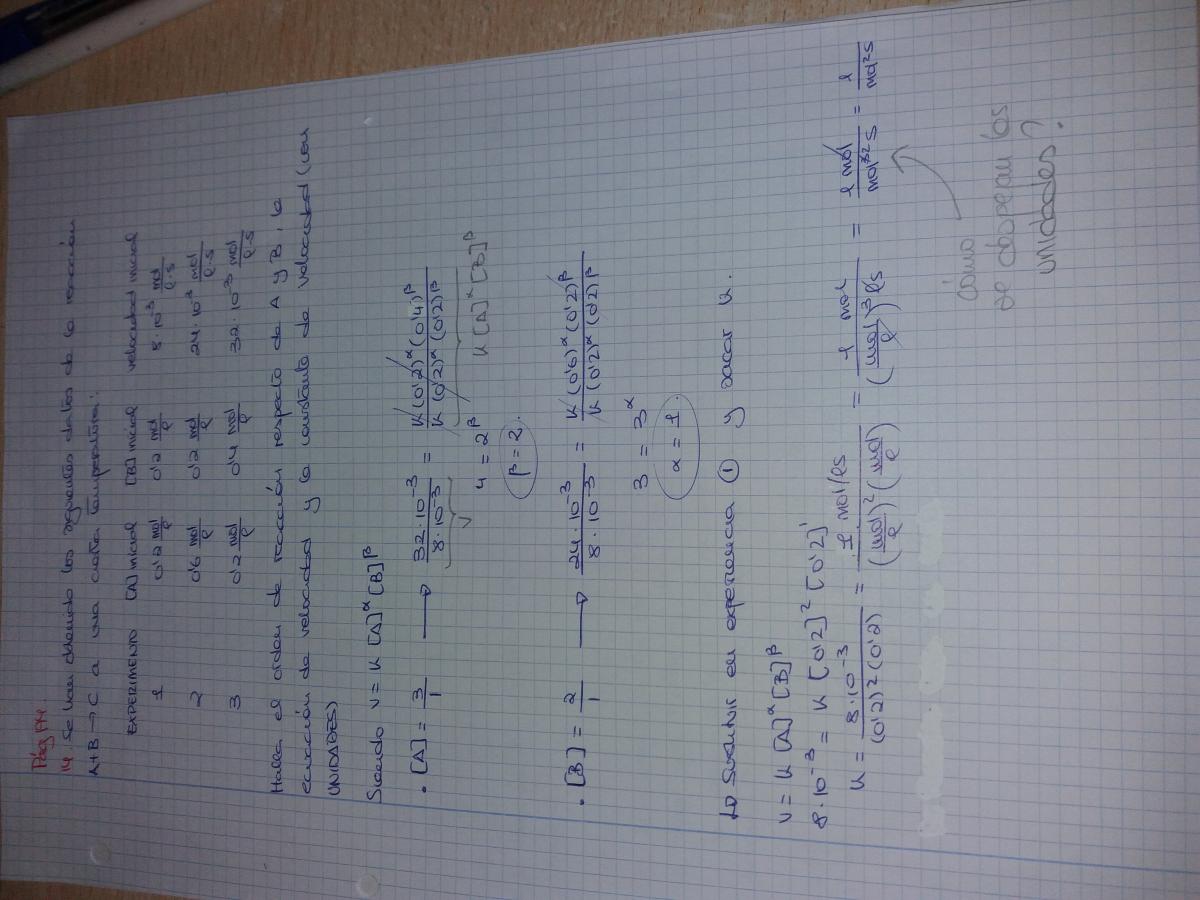 Pág 174
14. Se han obtenido los siguientes datos de la reacción
A+B → C a una cierta temperatura:
EXPERIMENTO [A] inicial [B] inicial velocidad inicial
1 0'2 mol/l 0'2 mol/l 8·10⁻³ mol/l·s
2 0'6 mol/l 0'2 mol/l 24·10⁻³ mol/l·s
3 0'2 mol/l 0'4 mol/l 32·10⁻³ mol/l·s
Halla el orden de reacción respecto de A y B, la
ecuación de velocidad y la constante de velocidad (con
UNIDADES)
Siendo v = K [A]^α [B]^β
• [A] = 3/1 → 32·10⁻³/8·10⁻³ = K(0'2)^α(0'4)^β/K(0'2)^α(0'2)^β
v K[A]^α[B]^β
4 = 2^β
β = 2.
• [B] = 2/1 → 24·10⁻³/8·10⁻³ = K(0'6)^α(0'2)^β/K(0'2)^α(0'2)^β
3 = 3^α
α = 1.
↳ Sustituir en experiencia ① y sacar K.
v = K [A]^α [B]^β
8·10⁻³ = K [0'2]² [0'2]¹
K = 8·10⁻³/(0'2)²(0'2) = 1 mol/ls/(mol/l)²(mol/l) = 1 mol/(mol/l)³ls = 1 mol/mol³²s = 1/mol²s
cómo
se despejan las
unidades?